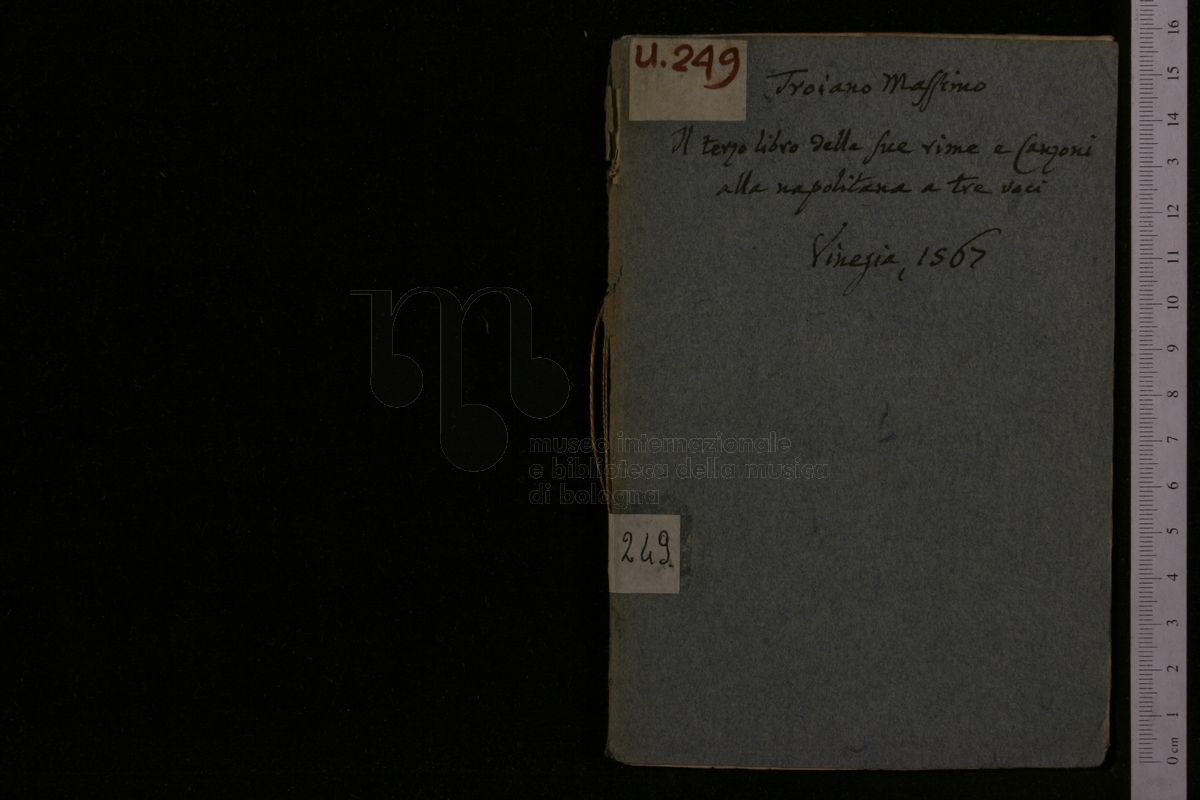 U.249
Troiano Massimo
Il terzo libro delle sue rime e Canzoni
alla napolitana a tre voci
Vinegia, 1567
museo internazionale
e biblioteca della musica
di bologna
249.
16
15
14
13
12
11
10
9
8
7
6
5
4
3
2
1
0 cm